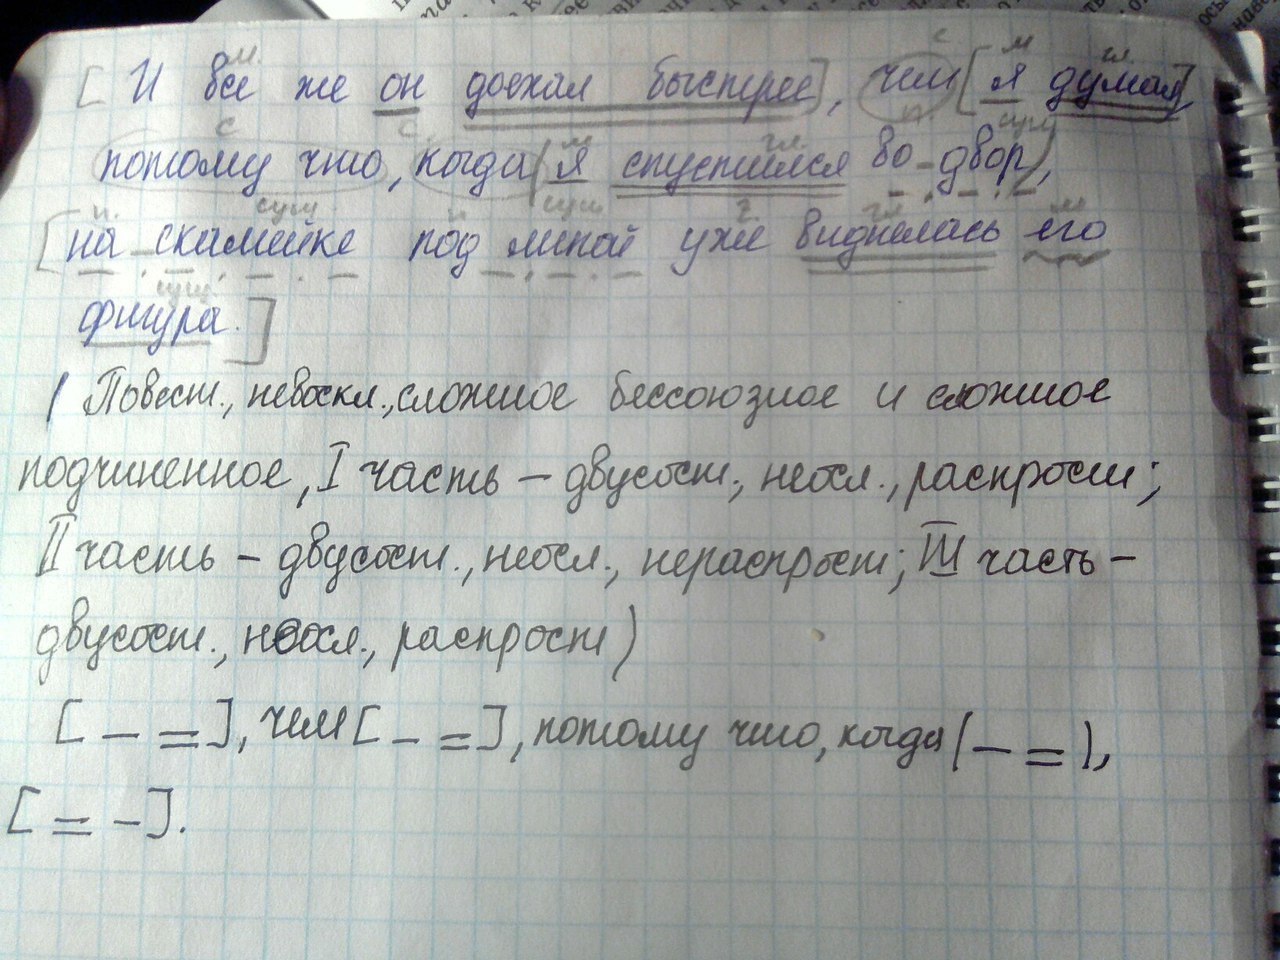 [И все же он доехал быстрее], чем [я думал],
потому что, когда (я спустился во двор),
[на скамейке под липой уже виднелась его
фигура.]
(Повест., невоскл., сложное бессоюзное и сложное
подчиненное, I часть – двусост., неосл., распрост;
II часть – двусост., неосл., нераспрост; III часть –
двусост., неосл., распрост)
[ – = ], чем [ – = ], потому что, когда ( – = ),
[ = – ].